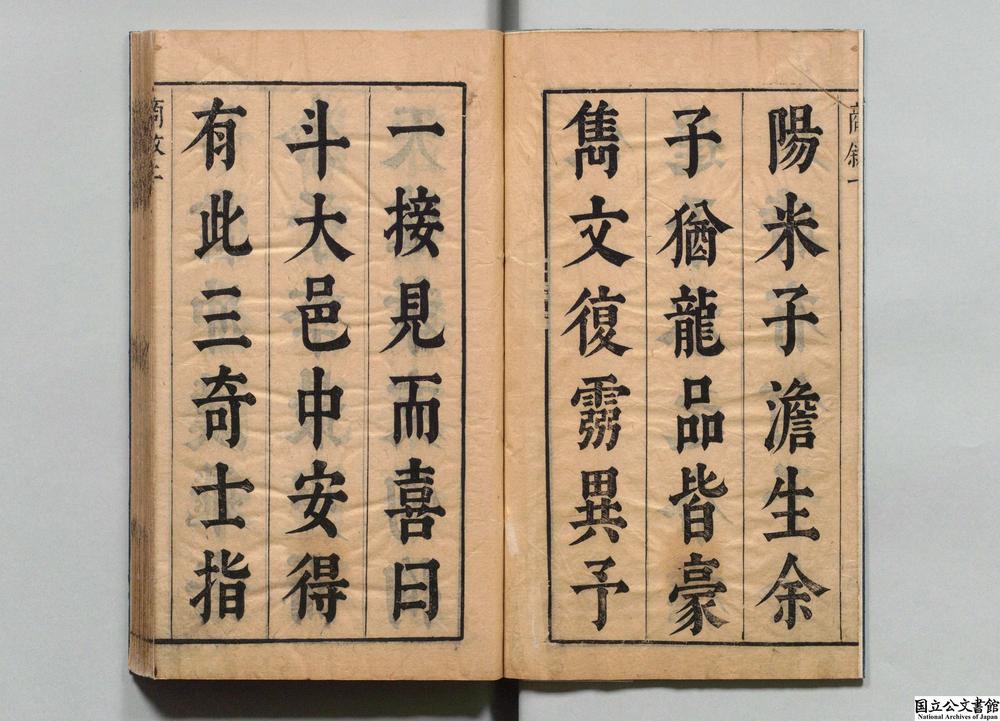 陽米子澹生余
子猶龍品皆豪
雋文復霛異予
一接見而喜曰
斗大邑中安得
有此三奇士指
国立公文書館
National Archives of Japan